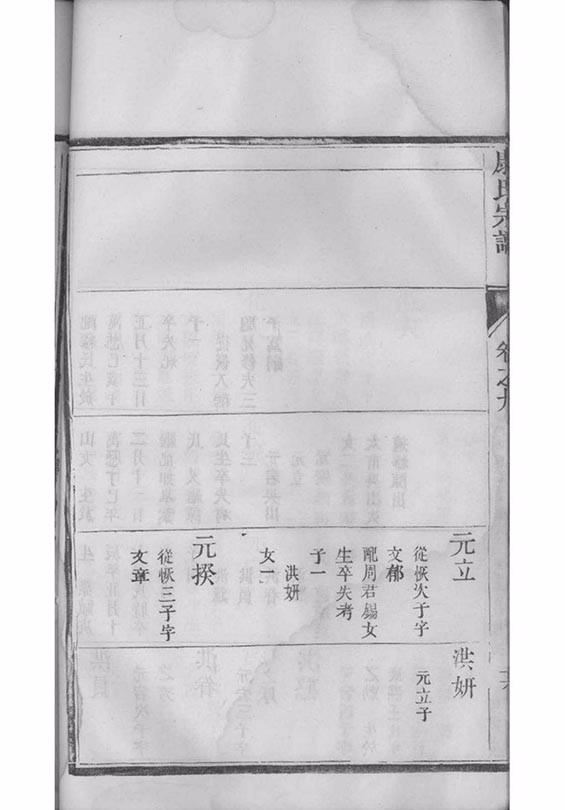 康氏宗譜
卷之九
元立
從恢次子字
文郁
配周君錫女
生卒失考
子一
洪妍
女一
元揆
從恢三子字
文章
洪妍
元立子